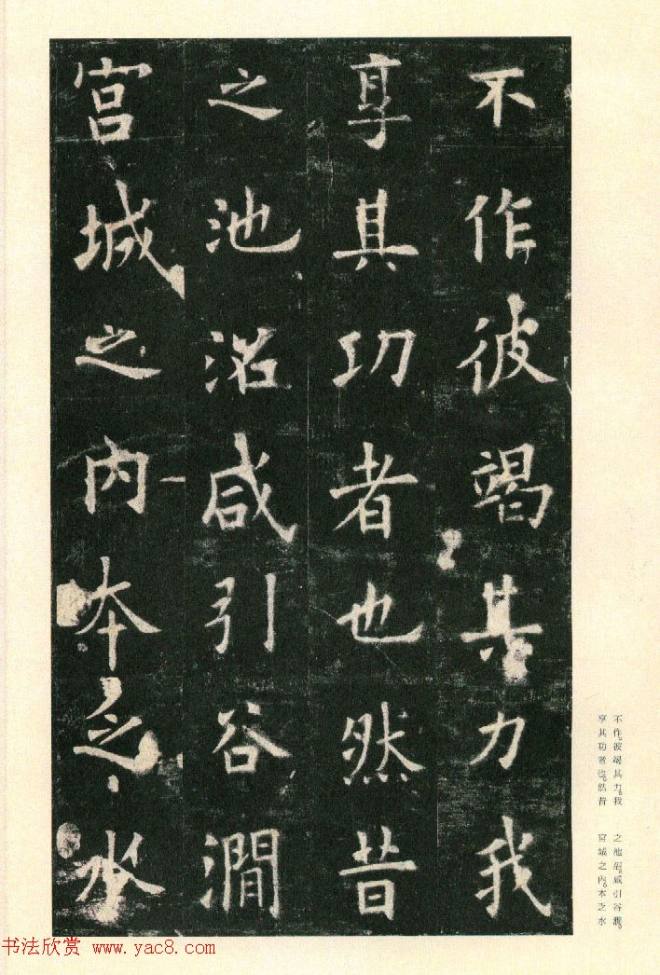 不作彼竭其力我
享其功者也然昔
之池沼咸引谷澗
宮城之內本乏水
不作。彼竭其力。我
享其功者也。然昔
之池沼。咸引谷澗。
宮城之內。本乏水
书法欣赏 www.yac8.com